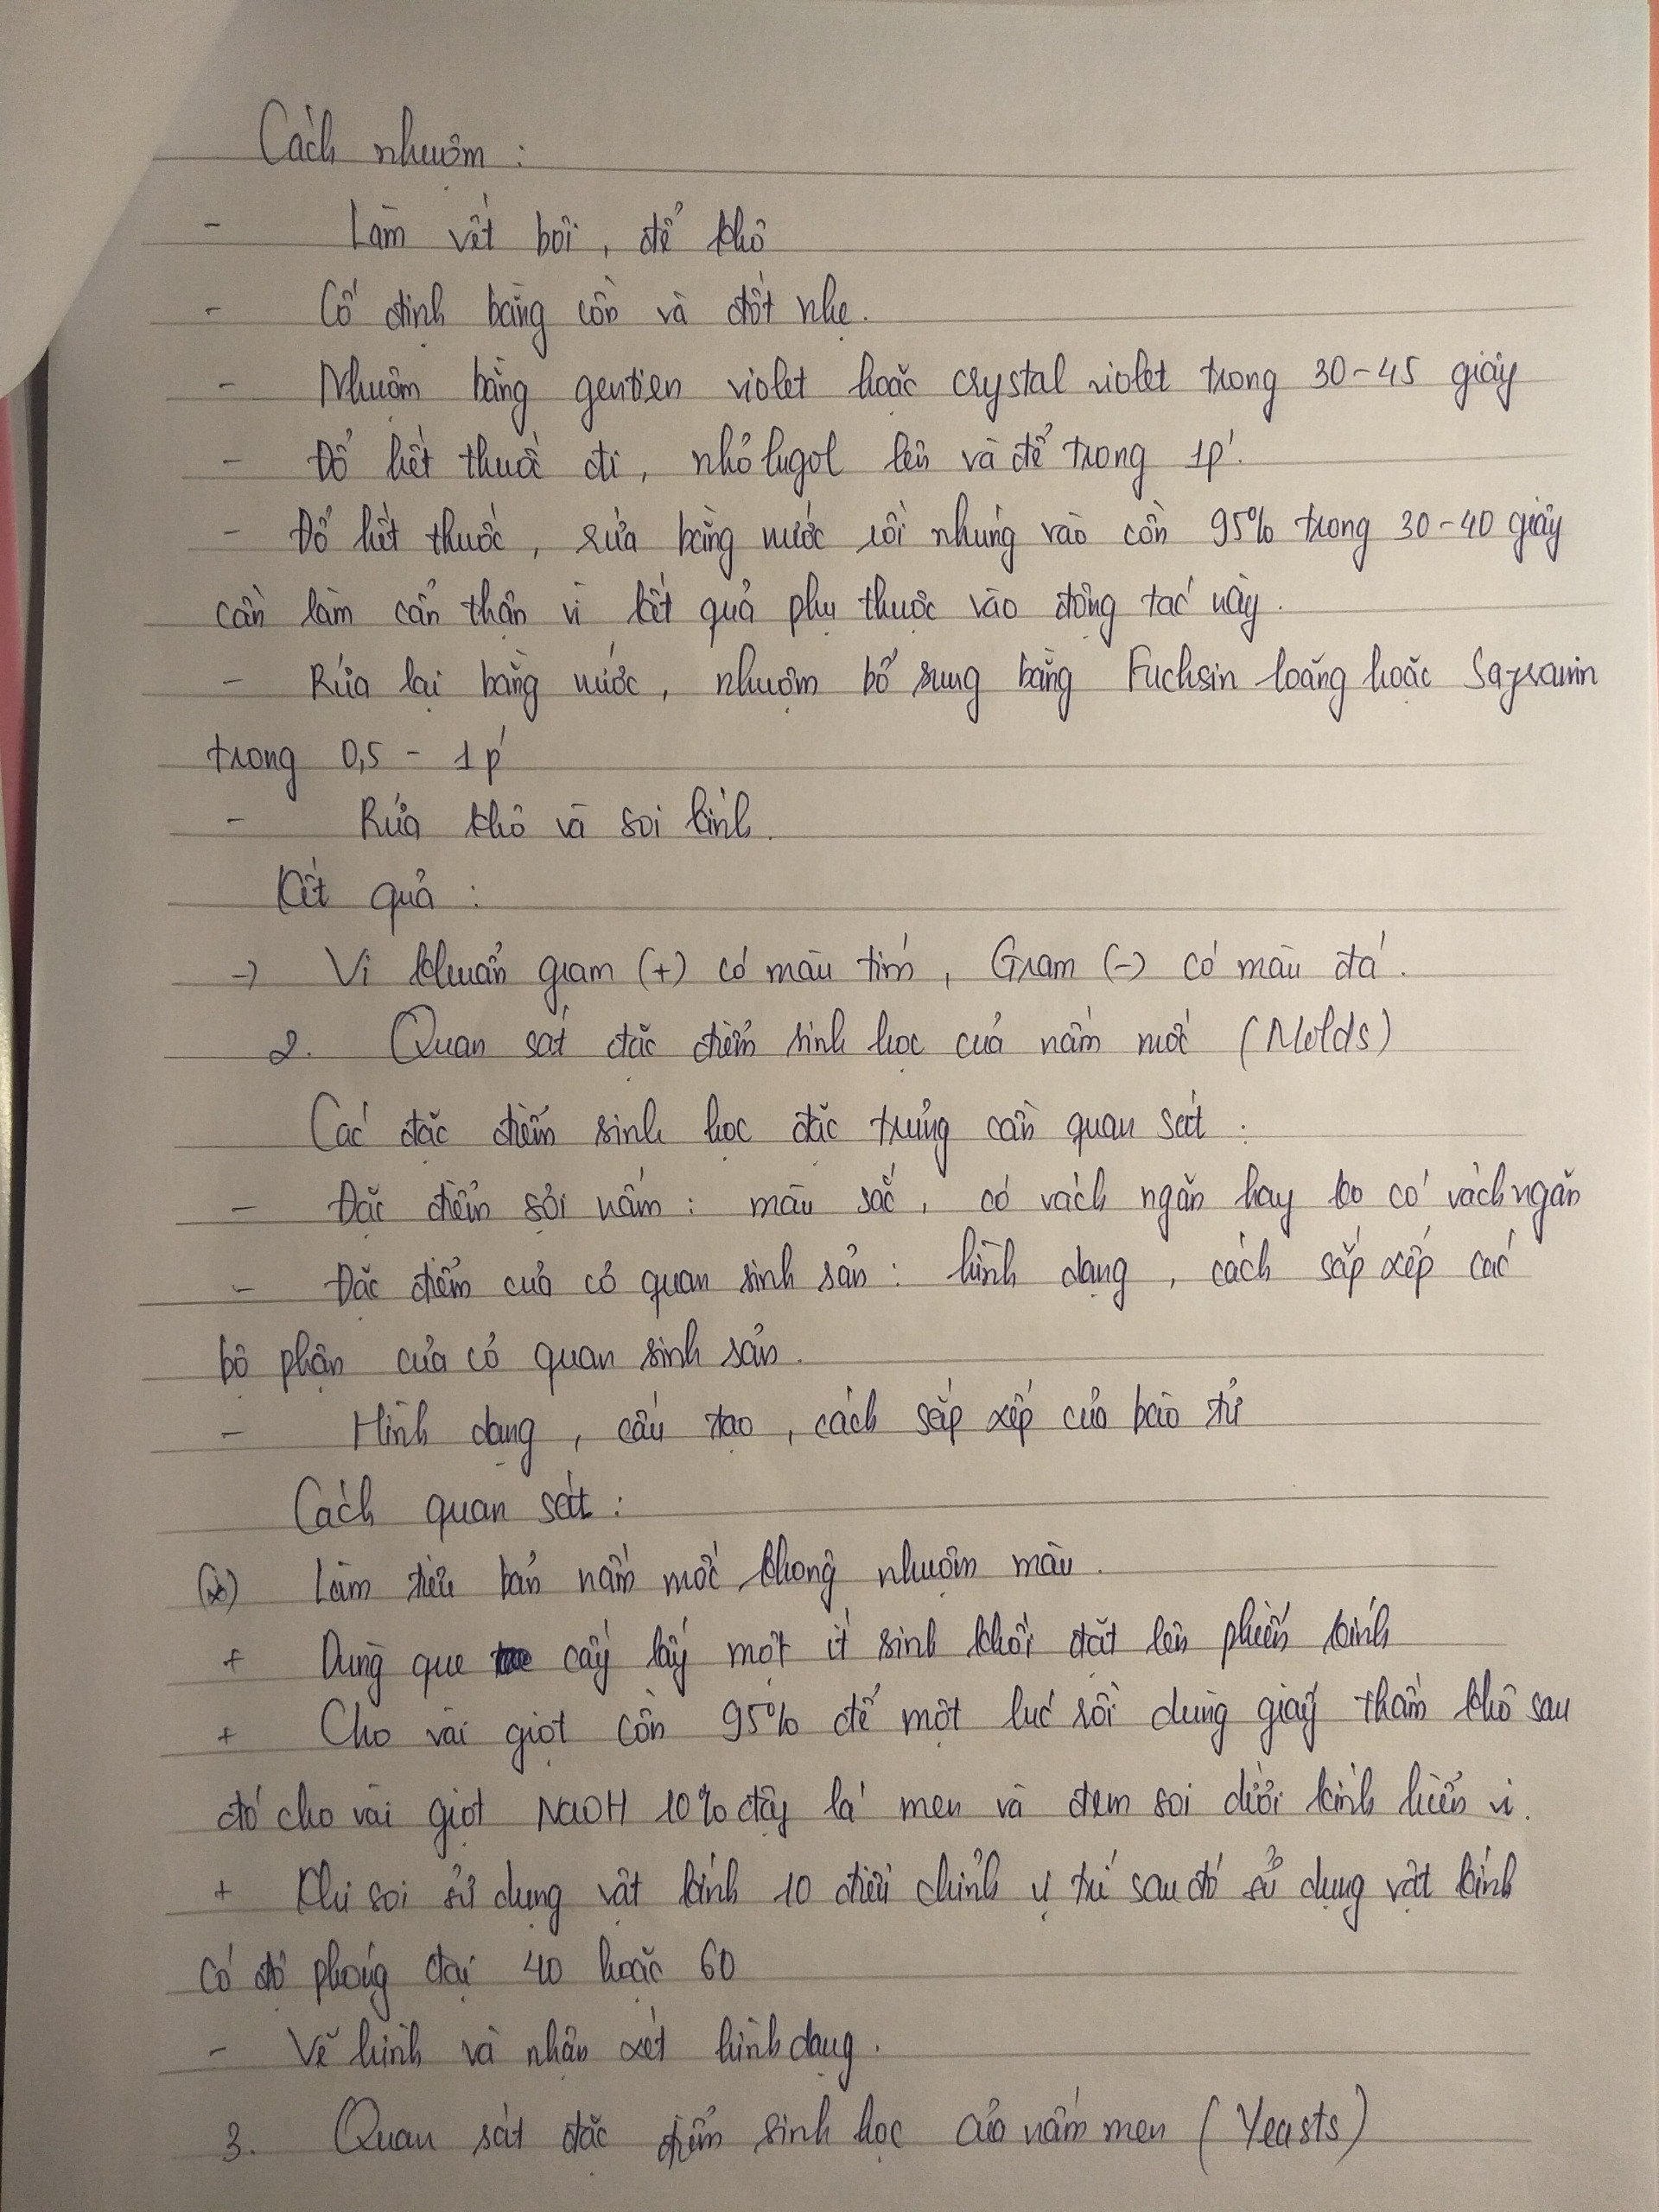 Cách nhuộm :
- Làm vết bôi , để khô
- Cố định bằng cồn và đốt nhẹ .
- Nhuộm bằng gentien violet hoặc crystal violet trong 30-45 giây
- Đổ hết thuốc đi , nhỏ lugol lên và để trong 1p' .
- Đổ hết thuốc , rửa bằng nước rồi nhúng vào cồn 95% trong 30-40 giây
cần làm cẩn thận vì kết quả phụ thuộc vào động tác này .
- Rửa lại bằng nước , nhuộm bổ sung bằng Fuchsin loãng hoặc Safranin
trong 0,5 - 1 p'
- Rửa khô và soi kính .
Kết quả :
→ Vi khuẩn gram (+) có màu tím , Gram (-) có màu đỏ .
2. Quan sát đặc điểm sinh học của nấm mốc (Molds)
Các đặc điểm sinh học đặc trưng cần quan sát :
- Đặc điểm sợi nấm : màu sắc , có vách ngăn hay ko có vách ngăn
- Đặc điểm của cơ quan sinh sản : hình dạng , cách sắp xếp các
bộ phận của cơ quan sinh sản .
- Hình dạng , cấu tạo , cách sắp xếp của bào tử
Cách quan sát :
(*) Làm tiêu bản nấm mốc không nhuộm màu .
+ Dùng que cấy lấy một ít sinh khối đặt lên phiến kính
+ Cho vài giọt cồn 95% để một lúc rồi dùng giấy thấm khô sau
đó cho vài giọt NaOH 10% đậy lá men và đem soi dưới kính hiển vi .
+ Khi soi sử dụng vật kính 10 điều chỉnh vị trí sau đó sử dụng vật kính
có độ phóng đại 40 hoặc 60
- Vẽ hình và nhận xét hình dạng .
3. Quan sát đặc điểm sinh học của nấm men (Yeasts)